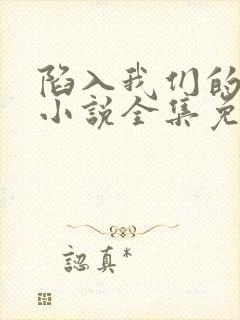 陷入我们的
小说全集免
認真*